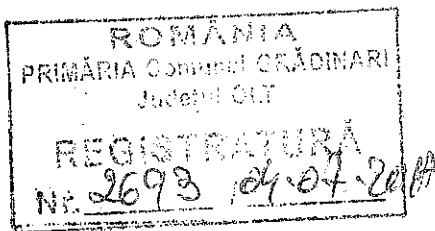 ROMÂNIA
PRIMĂRIA Comunei GRĂDINARI
Județul OLT
REGISTRATURĂ
Nr. 2693 04.07.